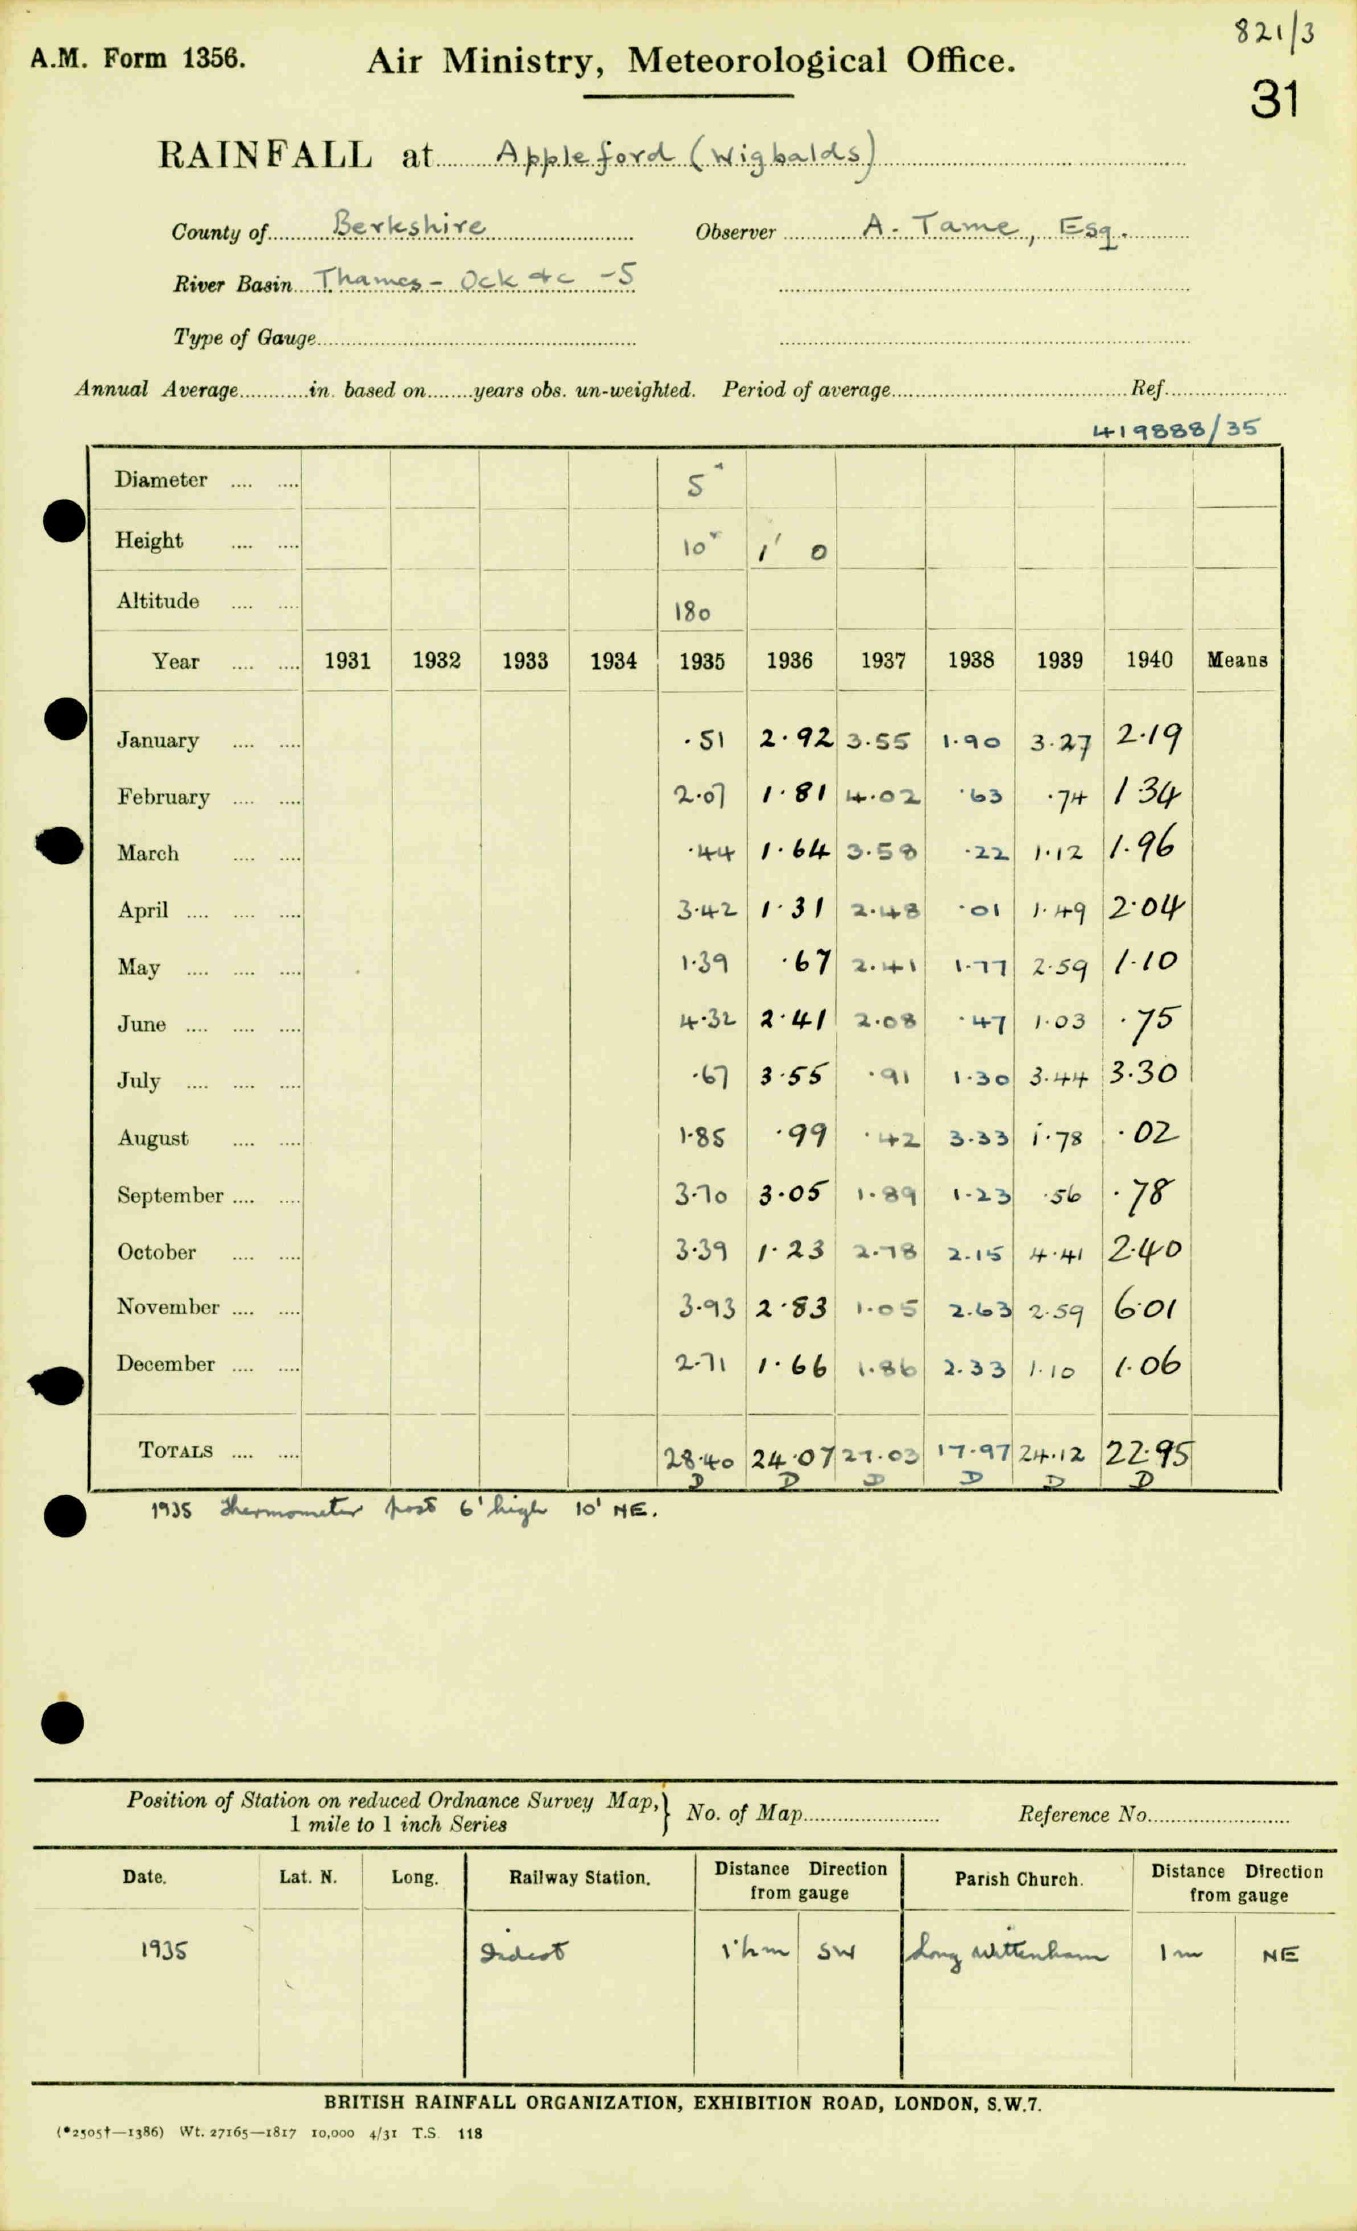 821/3
A.M. Form 1356. Air Ministry, Meteorological Office.
31
RAINFALL at Appleford (Wigbalds)
County of Berkshire Observer A. Tame, Esq.
River Basin Thames - Ock &c -5
Type of Gauge
Annual Average in. based on years obs. un-weighted. Period of average Ref.
419888/35
Diameter 5"
Height 10" 1' 0
Altitude 180
Year 1931 1932 1933 1934 1935 1936 1937 1938 1939 1940 Means
January .51 2.92 3.55 1.90 3.27 2.19
February 2.07 1.81 4.02 .63 .74 1.34
March .44 1.64 3.58 .22 1.12 1.96
April 3.42 1.31 2.48 .01 1.49 2.04
May 1.39 .67 2.41 1.77 2.59 1.10
June 4.32 2.41 2.08 .47 1.03 .75
July .67 3.55 .91 1.30 3.44 3.30
August 1.85 .99 .42 3.33 1.78 .02
September 3.70 3.05 1.89 1.23 .56 .78
October 3.39 1.23 2.78 2.15 4.41 2.40
November 3.93 2.83 1.05 2.63 2.59 6.01
December 2.71 1.66 1.86 2.33 1.10 1.06
TOTALS 28.40 24.07 27.03 17.97 24.12 22.95
D D D D D D
1935 Thermometer post 6' high 10' NE.
Position of Station on reduced Ordnance Survey Map, } No. of Map Reference No.
1 mile to 1 inch Series
Date. Lat. N. Long. Railway Station. Distance Direction from gauge Parish Church. Distance Direction from gauge
1935 Didcot SW Long Wittenham 1 m NE
BRITISH RAINFALL ORGANIZATION, EXHIBITION ROAD, LONDON, S.W.7.
(*2505†—1386) Wt. 27165—1817 10,000 4/31 T.S. 118